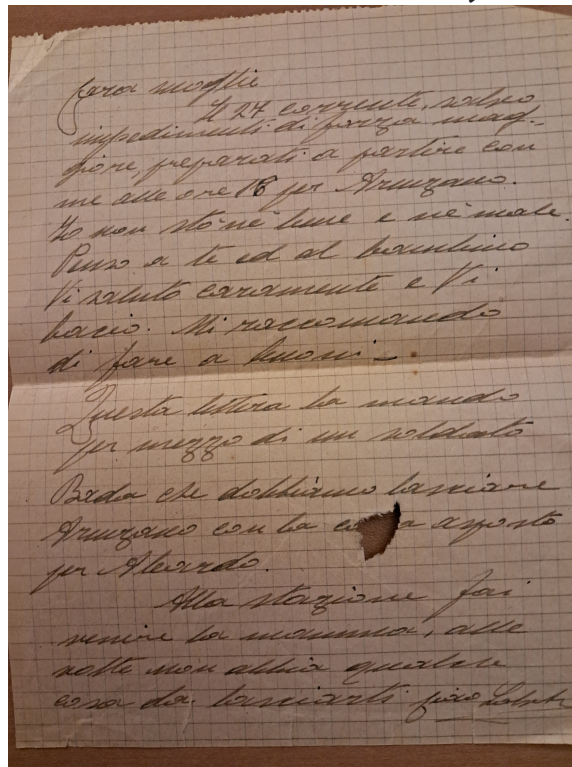 Cara moglie
Il 27 corrente, salvo
impedimenti di forza mag-
giore, preparati a partire con
me alle ore 18 per Aruzzano.
Io non stò nè bene e nè male.
Penso a te ed al bambino
Vi saluto caramente e Vi
bacio. Mi raccomando
di fare a buoni –
Questa lettera la mando
per mezzo di un soldato
Bada che dobbiamo lasciare
Aruzzano con la a aposto
per Aleardo.
Alla stazione fai
venire la mamma, alle
volte non abbia qualche
cosa da lasciarti